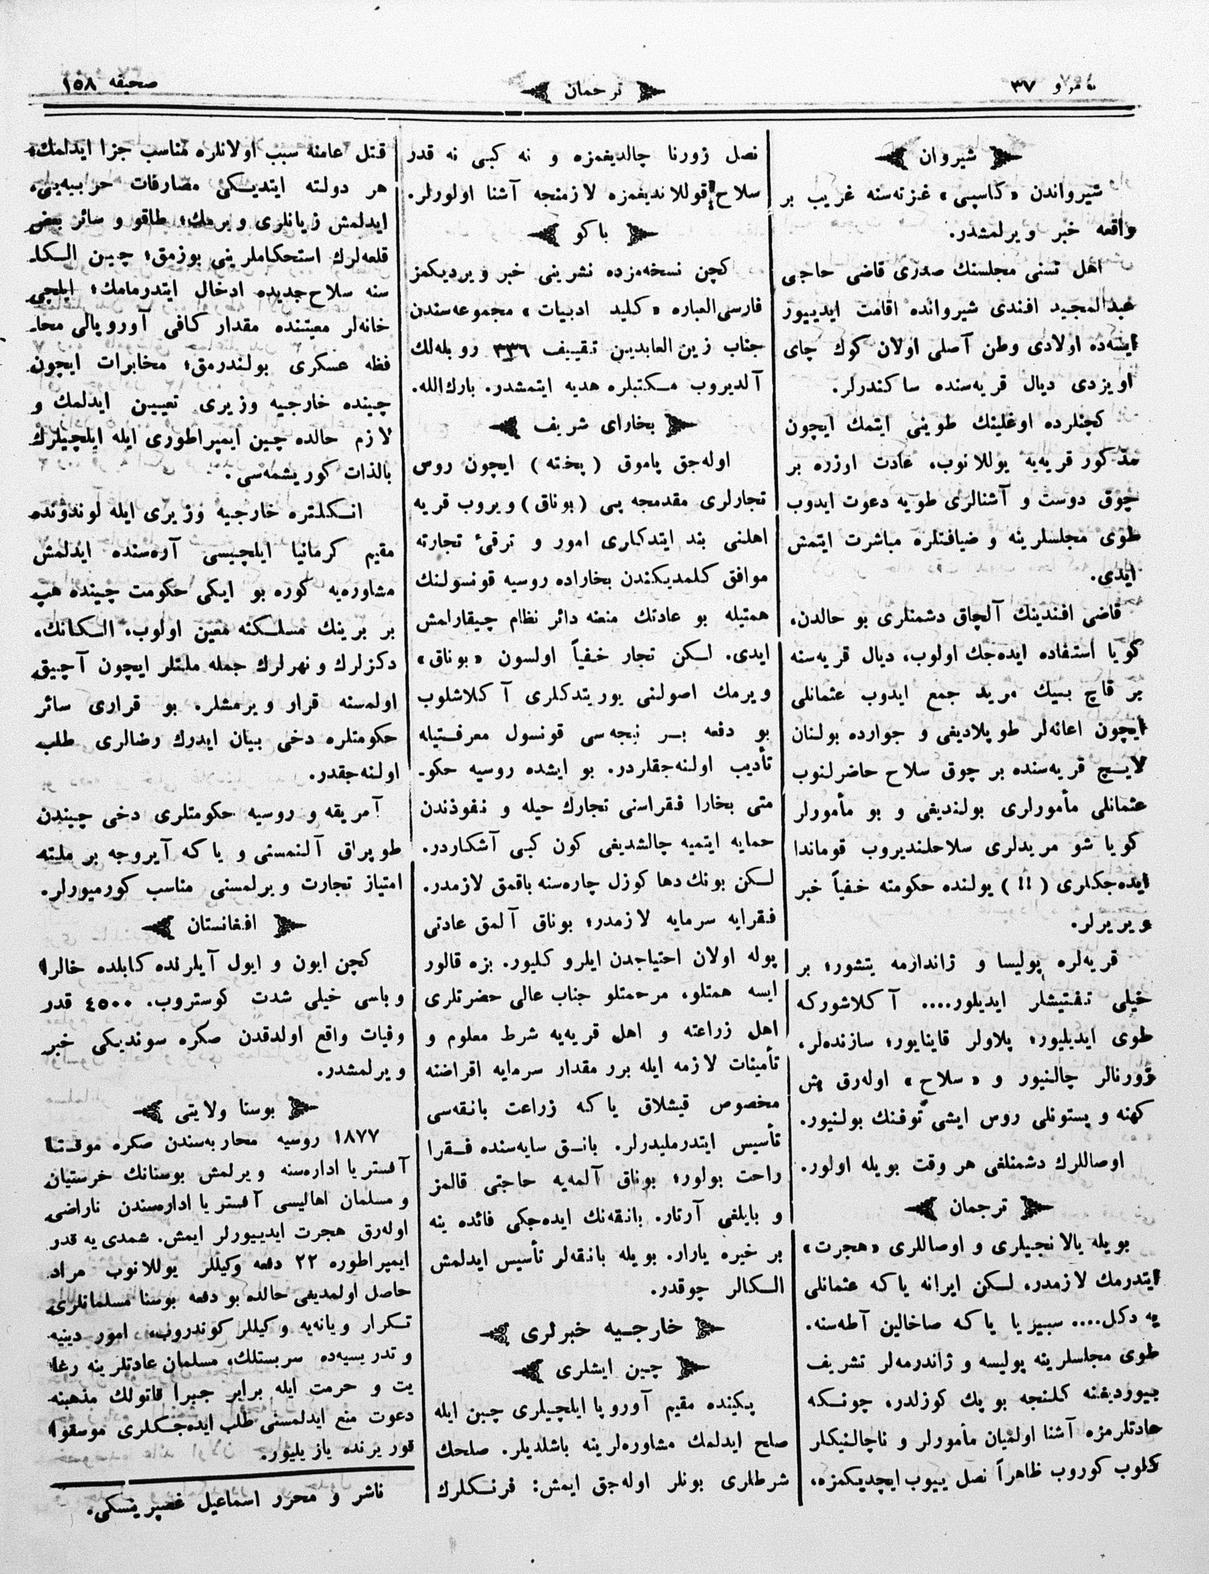 نومرو ٣٧
ترجمان
صحيفه ١٥٨
شيروان
شيرواندن «كاسپى» غزته‌سنه غريب بر
واقعه خبر ويرلمشدر.
اهل تسنى مجلسنك صدرى قاضى حاجى
عبدالمجيد افندى شيروانده اقامت ايدييور
ايسه‌ده اولادى وطن آصلى اولان كوك چاى
اويزدى ديال قريه‌سنده ساكندرلر.
كچنلرده اوغلينك طوينى ايتمك ايچون
مذكور قريه‌يه يوللانوب، عادت اوزره بر
چوق دوست و آشنالرى طويه دعوت ايدوب
طوى مجلسلرينه و ضيافتلره مباشرت ايتمش
ايدى.
قاضى افندينك آلچاق دشمنلرى بو حالدن،
كويا استفاده ايده‌جك اولوب، ديال قريه‌سنه
بر قاچ بيك مريد جمع ايدوب عثمانلى
ايچون اعانه‌لر طوپلاديغى و جوارده بولنان
لايج قريه‌سنده بر چوق سلاح حاضرلنوب
عثمانلى مأمورلرى بولنديغى و بو مأمورلر
كويا شو مريدلرى سلاحلنديروب قوماندا
ايده‌جكلرى (!!) يولنده حكومته خفياً خبر
ويريرلر.
قريه‌لره پوليسا و ژاندارمه يتشور؛ بر
خيلى تفتيشلر ايديلور.... آكلاشوركه
طوى ايديليور؛ پلاولر قاينايور؛ سازنده‌لر،
زورنالر چالنيور و «سلاح» اوله‌رق بش
كهنه و يستونلى روس ايشى توفنك بولنيور.
اوصاللرك دشمنلغى هر وقت بويله اولور.
ترجمان
بويله يالانجيلرى و اوصاللرى «هجرت»
ايتدرمك لازمدر، لكن ايرانه ياكه عثمانلى
يه دكل.... سيبيريا ياكه صاخالين آطه‌سنه.
طوى مجلسلرينه پوليسه و ژاندرمه‌لر تشريف
بيورديغنه كلنجه بو پك كوزلدر، چونكه
عادتلرمزه آشنا اولميان مأمورلر و ناچالنيكلر
كلوب كوروب ظاهراً نصل يييوب ايچديكمزه،
نصل زورنا چالديغمزه و نه كبى نه قدر
سلاح قوللانديغمزه لازمنجه آشنا اولورلر.
باكو
كچن نسخه‌مزده نشرينى خبر ويرديكمز
فارسى‌العباره «كليد ادبيات» مجموعه‌سندن
جناب زين‌العابدين تقييف ٣٣٦ روبله‌لك
آلديروب مكتبلره هديه ايتمشدر. بارك‌الله.
بخاراى شريف
اوله‌جق پاموق (پخته) ايچون روس
تجارلرى مقدمجه پى (بوناق) ويروب قريه
اهلنى بند ايتدكلرى امور و ترقئ تجارته
موافق كلمديكندن بخاراده روسيه قونسولنك
همتيله بو عادتك منعنه دائر نظام چيقارلمش
ايدى. لكن تجار خفياً اولسون «بوناق»
ويرمك اصولنى يوريتدكلرى آكلاشلوب
بو دفعه بر نيجه‌سى قونسول معرفتيله
تأديب اولنه‌جقلردر. بو ايشده روسيه حكو-
متى بخارا فقراسنى تجارك حيله و نفوذندن
حمايه ايتميه چالشديغى كون كبى آشكاردر.
لكن بونك دها كوزل چاره‌سنه باقمق لازمدر.
فقرايه سرمايه لازمدر؛ بوناق آلمق عادتى
پوله اولان احتياجدن ايلرو كليور. بزه قالور
ايسه همتلو، مرحمتلو جناب عالى حضرتلرى
اهل زراعته و اهل قريه‌يه شرط معلوم و
تأمينات لازمه ايله برر مقدار سرمايه اقراضنه
مخصوص قيشلاق ياكه زراعت بانقه‌سى
تأسيس ايتدرمليدرلر. بانق سايه‌سنده فقرا
راحت بولور؛ بوناق آلمه‌يه حاجتى قالمز
و بايلغى آرتار. بانقه‌نك ايده‌جكى فائده ينه
بر خيره يارار. بويله بانقه‌لر تأسيس ايدلمش
الكالر چوقدر.
خارجيه خبرلرى
چين ايشلرى
پكينده مقيم آوروپا ايلچيلرى چين ايله
صلح ايدلمك مشاوره‌لرينه باشلديلر. صلحك
شرطلرى بونلر اوله‌جق ايمش: فرنكلرك
قتل عامنه سبب اولانلره مناسب جزا ايدلمك؛
هر دولته ايتديكى مصارفات حربيه‌يى،
ايدلمش زيانلرى ويرمك؛ طاقو و سائر بعض
قلعه‌لرك استحكاملرينى بوزمق؛ چين الكا-
سنه سلاح جديده ادخال ايتدرمامك؛ ايلچى
خانه‌لر معيتنده مقدار كافى آوروپالى محا-
فظه عسكرى بولندرمق؛ مخابرات ايچون
چينده خارجيه وزيرى تعيين ايدلمك و
لازم حالده چين ايمپراطورى ايله ايلچيلرك
بالذات كوريشمه‌سى.
انكلتره خارجيه وزيرى ايله لوندونده
مقيم كرمانيا ايلچيسى آره‌سنده ايدلمش
مشاوره‌يه كوره بو ايكى حكومت چينده هپ
بر برينك مسلكنه معين اولوب، الكانك،
دكزلرك و نهرلرك جمله ملتلر ايچون آچيق
اولمسنه قرار ويرمشلر. بو قرارى سائر
حكومتلره دخى بيان ايدرك رضالرى طلب
اولنه‌جقدر.
آمريقه و روسيه حكومتلرى دخى چيندن
طوپراق آلنمسنى و ياكه آيروجه بر ملته
امتياز تجارت ويرلمسنى مناسب كورميورلر.
افغانستان
كچن ايون و ايول آيلرنده كابلده خالرا
وباسى خيلى شدت كوستروب. ٤٥٠٠ قدر
وفيات واقع اولدقدن صكره سونديكى خبر
ويرلمشدر.
بوسنا ولايتى
١٨٧٧ روسيه محاربه‌سندن صكره موقتا
آفستريا اداره‌سنه ويرلمش بوسنانك خرستيان
و مسلمان اهاليسى آفستريا اداره‌سندن ناراضى
اوله‌رق هجرت ايدييورلر ايمش. شمدى‌يه قدر
ايمپراطوره ٢٢ دفعه وكيللر يوللانوب مراد
حاصل اولمديغى حالده بو دفعه بوسنا مسلمانلرى
تكرار ويانه‌يه وكيللر كوندروب، امور دينيه
و تدريسيه‌ده سربستلك، مسلمان عادتلرينه رعا-
يت و حرمت ايله برابر جبرا قاتولك مذهبنه
دعوت منع ايدلمسنى طلب ايده‌جكلرى موسقوا
قوريرنده يازيليور.
ناشر و محرر اسماعيل غصپرينسكى.